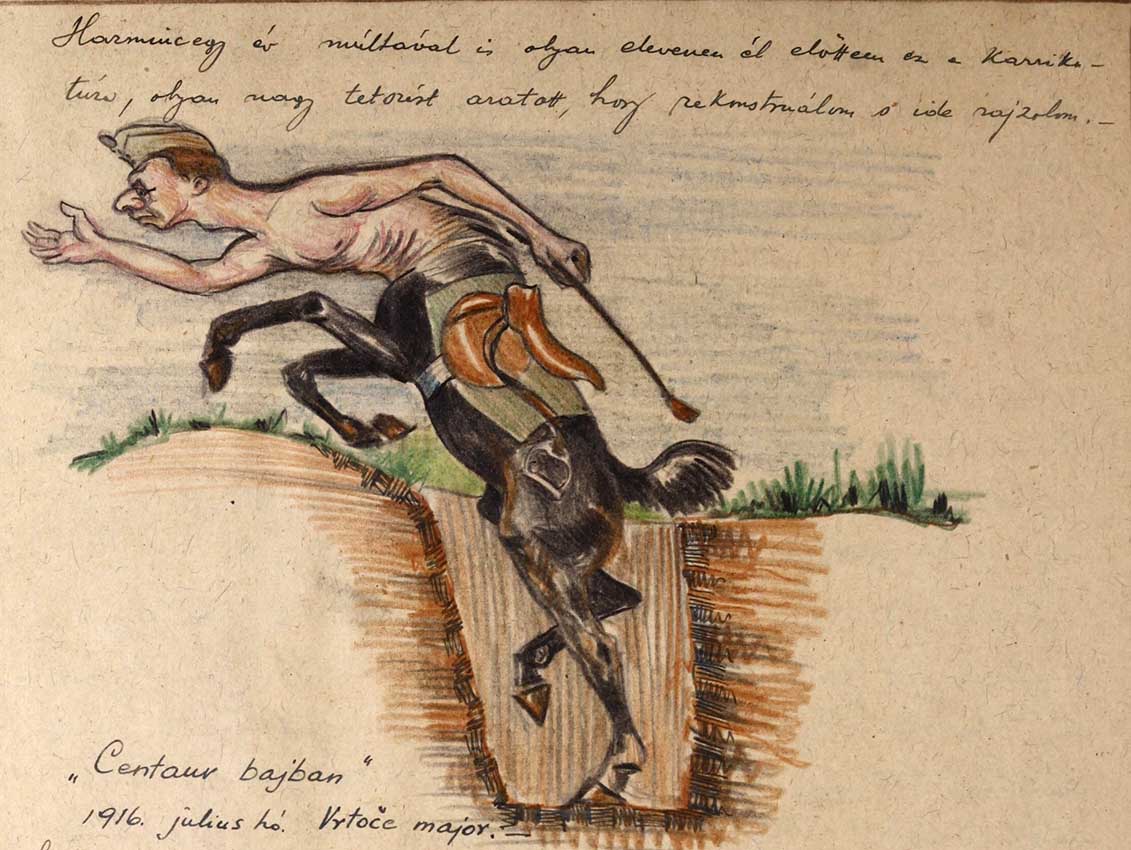 Harmincegy év múltával is olyan elevenen él előttem ez a Karrika-
túra, olyan nagy tetszést aratott, hogy rekonstruálom s ide rajzolom.-
„Centaur bajban"
1916. július hó. Vrtoče major.-